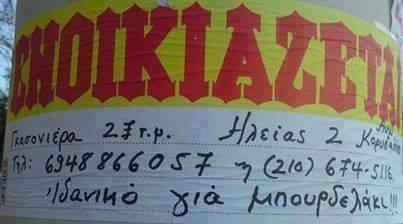 ΕΝΟΙΚΙΑΖΕΤΑΙ
Γκασονιέρα 27 τ.μ. Ηλείας 2
Τηλ: 6948866057 ή (210) 674-5116
Ιδανικό γιά μπουρδελάκι!!!